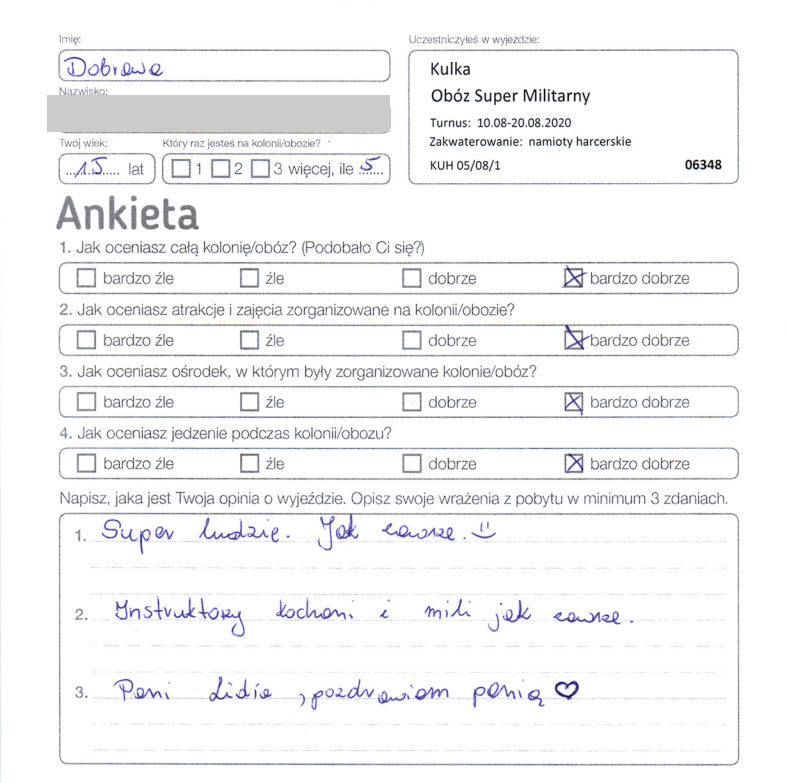 Imię:
Dobrawa
Nazwisko:
Twój wiek:
15 lat
Który raz jesteś na kolonii/obozie?
1 2 3 więcej, ile 5
Uczestniczyłeś w wyjeździe:
Kulka
Obóz Super Militarny
Turnus: 10.08-20.08.2020
Zakwaterowanie: namioty harcerskie
KUH 05/08/1 06348
Ankieta
1. Jak oceniasz całą kolonię/obóz? (Podobało Ci się?)
bardzo źle źle dobrze bardzo dobrze
2. Jak oceniasz atrakcje i zajęcia zorganizowane na kolonii/obozie?
bardzo źle źle dobrze bardzo dobrze
3. Jak oceniasz ośrodek, w którym były zorganizowane kolonie/obóz?
bardzo źle źle dobrze bardzo dobrze
4. Jak oceniasz jedzenie podczas kolonii/obozu?
bardzo źle źle dobrze bardzo dobrze
Napisz, jaka jest Twoja opinia o wyjeździe. Opisz swoje wrażenia z pobytu w minimum 3 zdaniach.
1. Super ludzie. Jak zawsze.
2. Instruktorzy kochani i mili jak zawsze.
3. Pani Lidia, pozdrawiam panią